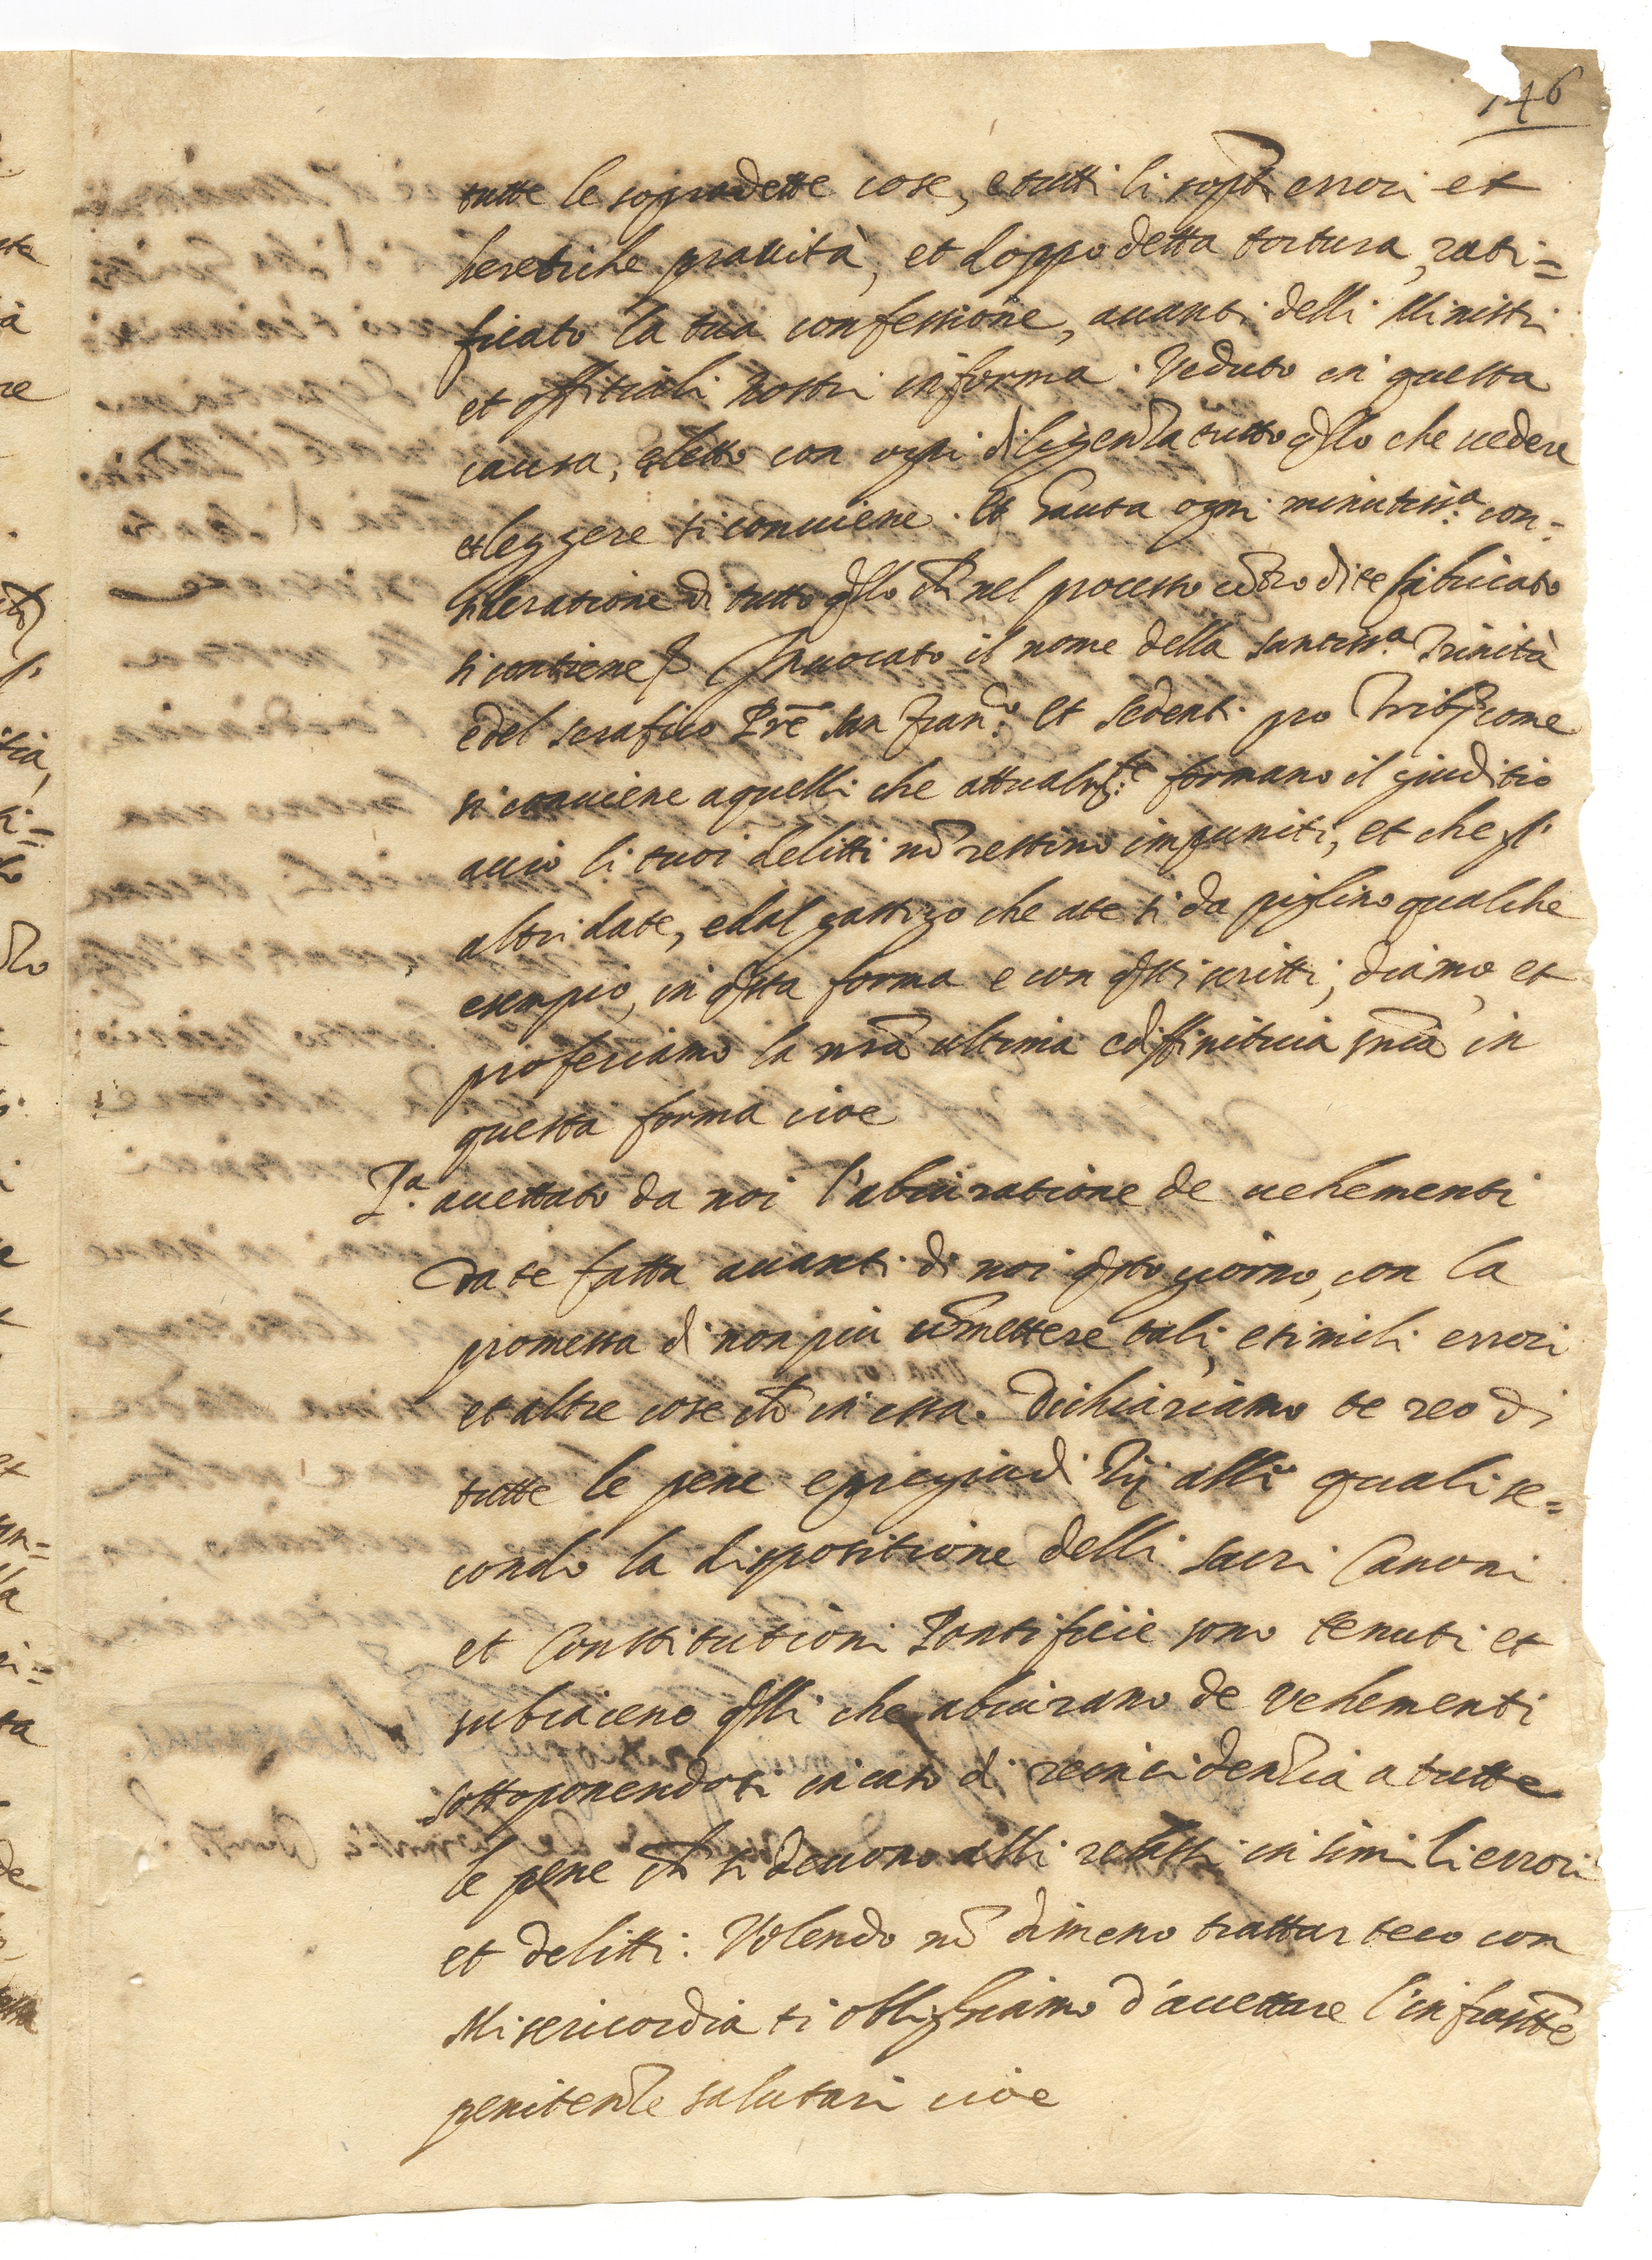 146
tutte le sopradette cose, e tutti li sopti errori et
heretiche prauità, et doppo detta tortura, rati=
ficato la tua confessione, auanti delli Ministri
et offitiali nostri in forma. Veduto in questa
causa, e letto con ogni diligenza tutto qllo che uedere
et leggere si conuiene. Et hauta ogni minutissa. con=
sideratione di tutto qllo ch nel processo cōtro di te fabricato
si contiene Inuocato il nome della santissa. Trinità
e del serafico Pre san Franco. et sedenti pro Tribli come
si conuiene a quelli che attualmte. formano il giuditio
acciò li tuoi delitti nō restino impuniti, et che gl'
altri da te, e dal gastigo che a te si da piglino qualche
esempio, in qsta forma e con qsti scritti, diamo et
proferiamo la nrā ultima e diffinitiua sniā in
questa forma cioe
Pa. accettato da noi l'abiuratione de uehementi
da te fatta auanti di noi qsto giorno, con la
promessa di non piu cōmettere tali, e simili errori
et altre cose ch in essa. Dichiariamo te reo di
tutte le pene e pregiuditij alli quali se=
condo la dispositione delli sacri Canoni
et Constitutioni Pontificie sono tenuti et
subiaceno qlli che abiurano de vehementi
sottoponendoti in caso di reincidenzia a tutte
le pene ch si deuono alli relassi in simili errori
et delitti: Volendo nō dimeno trattar teco con
Misericordia ti oblighiamo d'accettare l'infrastte
penitenze salutari cioe